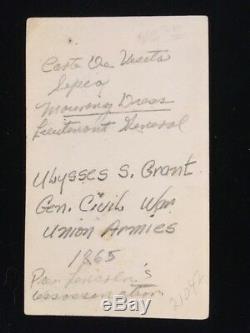 Carte De Visite
Sepia
Mourning Dress
Lieutenant General
Ulysses S. Grant
Gen. Civil War
Union Armies
1865
Lincoln's
assassination